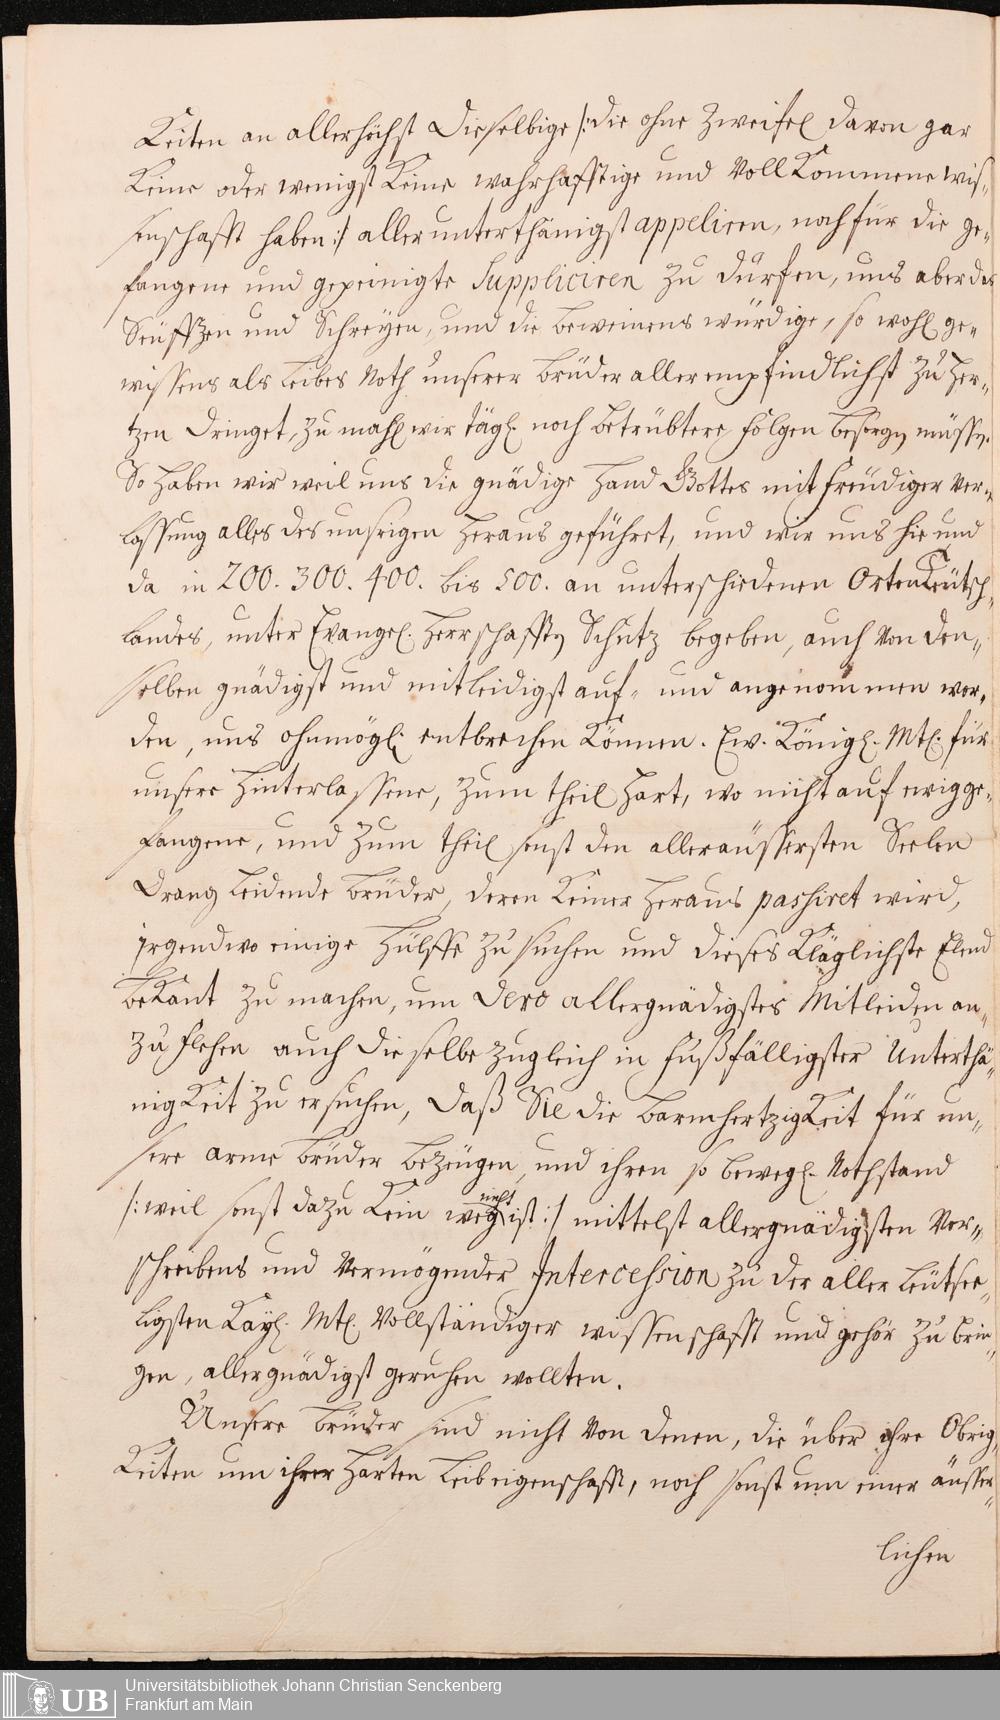 Keiten an allerhöchst Dieselbige /: die ohne Zweifel davon gar
Keine oder wenigst Keine wahrhafftige und VollKommene wis„
senschafft haben :/ allerunterthänigst appeliren, noch für die ge„
fangene und gepeinigte Suppliciren zu dürfen, uns aber das
Seüffzen und Schreÿen, und die beweinens würdige, so wohl ge„
wissens als Leibes Noth unserer Brüder allerempfindlichst zu Her„
tzen dringet, zu mahl wir tägl. noch betrübtere folgen besorgen müssen.
So haben wir weil uns die gnädige Hand Gottes mit freüdiger Ver„
lassung alles des unsrigen heraus geführet, und wir uns hie und
da in 200. 300. 400. bis 500. an unterschiedenen Orten Teütsch„
landes, unter Evangel. Herrschafften Schutz begeben, auch von den„
selben gnädigst und mitleidigst auf„ und angenommen wor„
den, uns ohnmögl. entbrechen Können. Ew. Königl. Mtl. für
unsere Hinterlassene, zum theil hart, wo nicht auf ewig ge„
fangene, und zum theil sonst den alleräussersten Seelen
Drang leidende Brüder, deren Keiner heraus passiret wird,
irgendwo einige Hülffe zu suchen und dieses Kläglichste Elend
beKant zu machen, um Dero allergnädigstes Mitleiden an„
zu flehen auch dieselbe zugleich in fußfälligster Unterthä„
nigKeit zu ersuchen, daß Sie die BarmhertzigKeit für un„
sere arme Brüder bezeügen, und ihren so bewegl. Nothstand
/: weil sonst dazu Kein weg nicht ist :/ mittelst allergnädigsten Vor„
schreibens und Vermögender Intercession zu der aller Leütsee„
ligsten Kaÿl. Mtl. Vollständiger wissenschafft und gehör zu brin„
gen, allergnädigst geruhen wollten.
Unsere Brüder sind nicht von denen, die über ihre Obrig„
Keiten um ihrer harten Leibeigenschafft, noch sonst um einer äusser„
lichen
UB Universitätsbibliothek Johann Christian Senckenberg
Frankfurt am Main